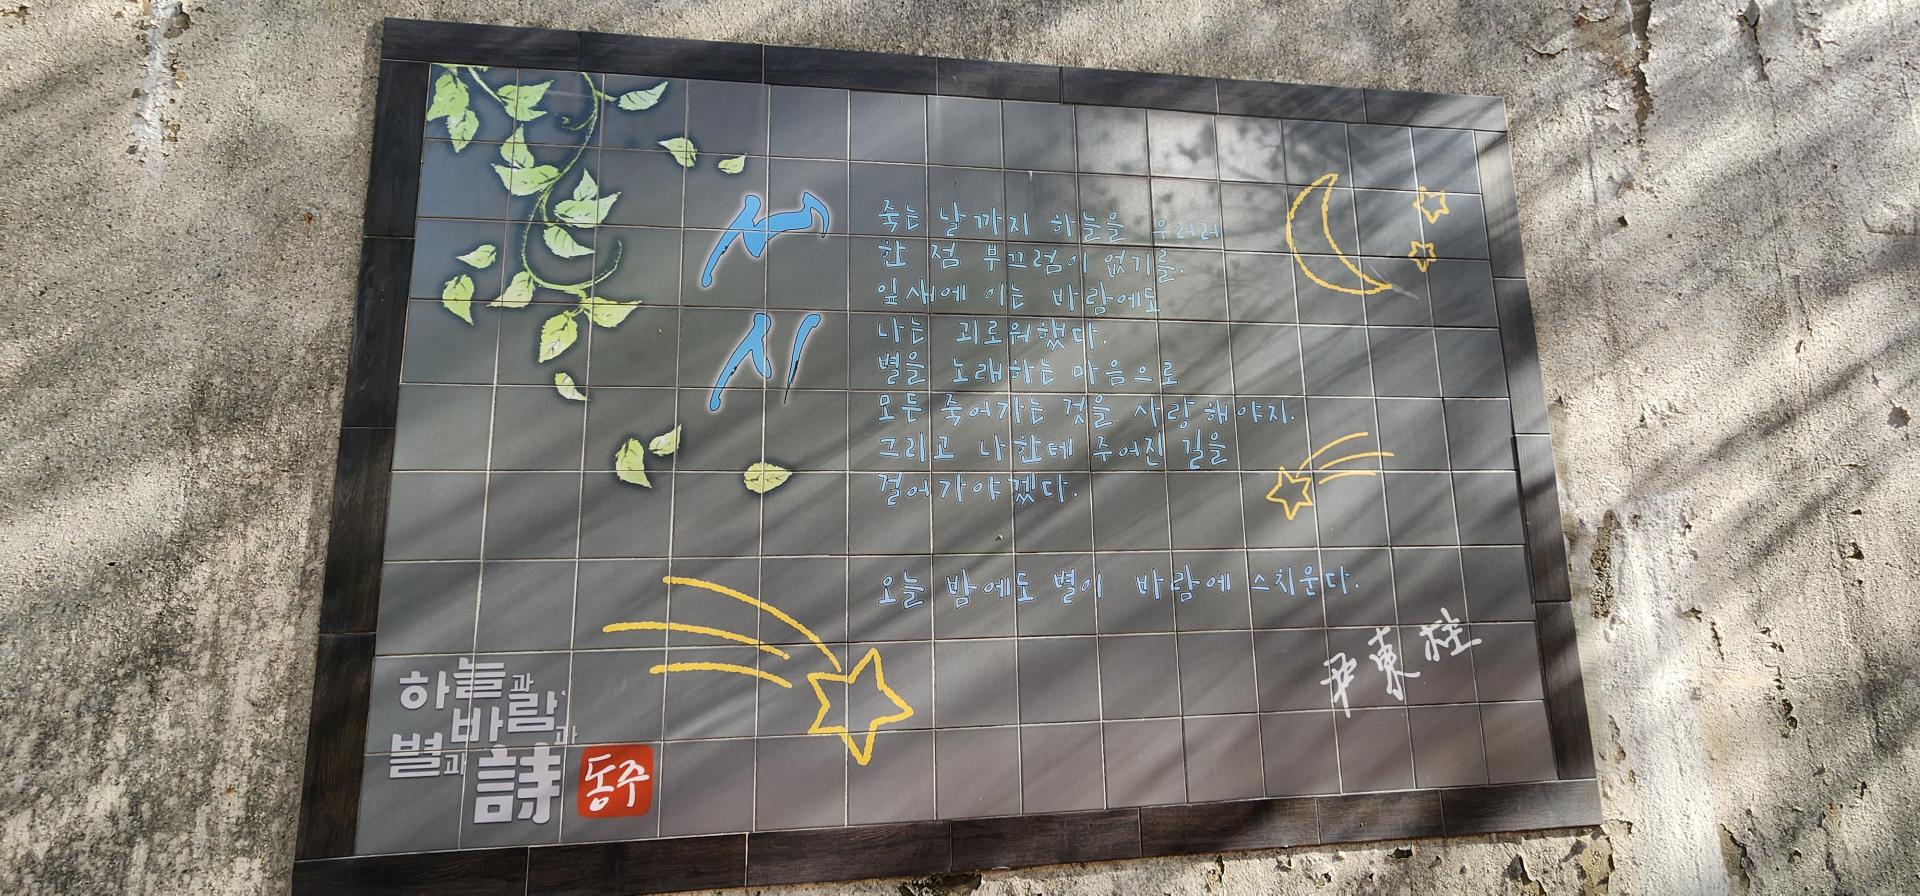 서시
죽는 날까지 하늘을 우러러
한 점 부끄럼이 없기를,
잎새에 이는 바람에도
나는 괴로워했다.
별을 노래하는 마음으로
모든 죽어가는 것을 사랑해야지.
그리고 나한테 주어진 길을
걸어가야겠다.
오늘 밤에도 별이 바람에 스치운다.
尹東柱
하늘과
바람과
별과 詩
동주